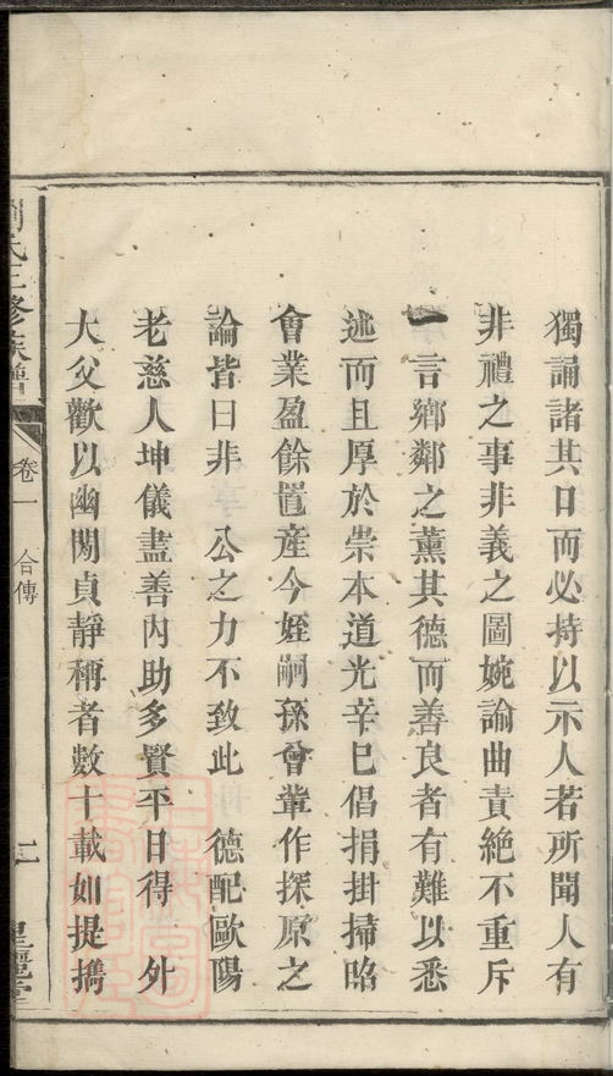 獨誦諸其口而必持以示人若所聞人有
非禮之事非義之圖婉諭曲責絶不重斥
一言鄉鄰之薰其德而善良者有難以悉
述而且厚於崇本道光辛巳倡捐掛掃昭
會業盈餘置產今姪嗣孫曾輩作探原之
論皆曰非　公之力不致此　德配歐陽
老慈人坤儀盡善內助多賢平日得　外
大父歡以幽閑貞靜稱者數十載如提攜
劉氏三修族譜
卷一　合傳
二